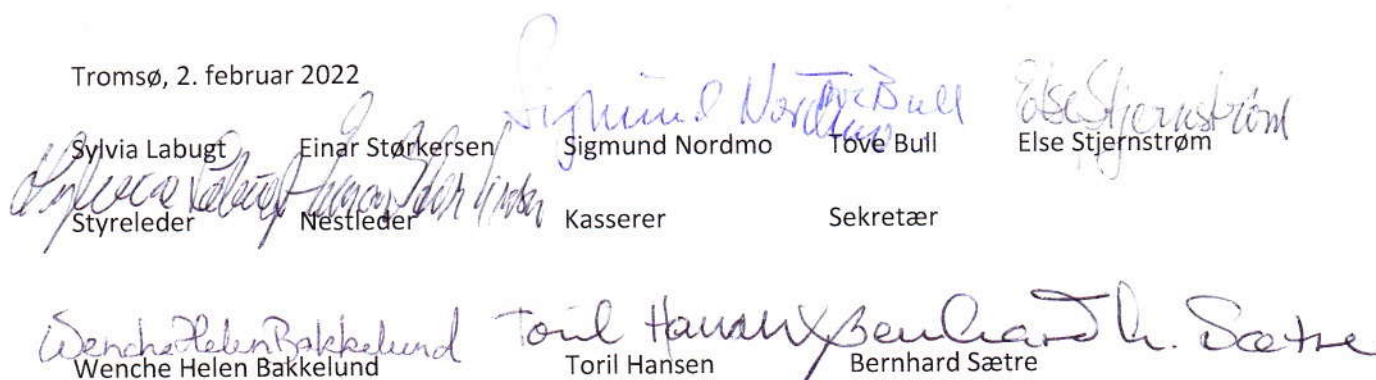 Tromsø, 2. februar 2022
Sigmund Nordmo Tove Bull Else Stjernstrøm
Sylvia Labugt Einar Størkersen Sigmund Nordmo Tove Bull Else Stjernstrøm
Sylvia Labugt Einar Størkersen
Styreleder Nestleder Kasserer Sekretær
Wenche Helen Bakkelund Toril Hansen Bernhard N. Sætre
Wenche Helen Bakkelund Toril Hansen Bernhard Sætre